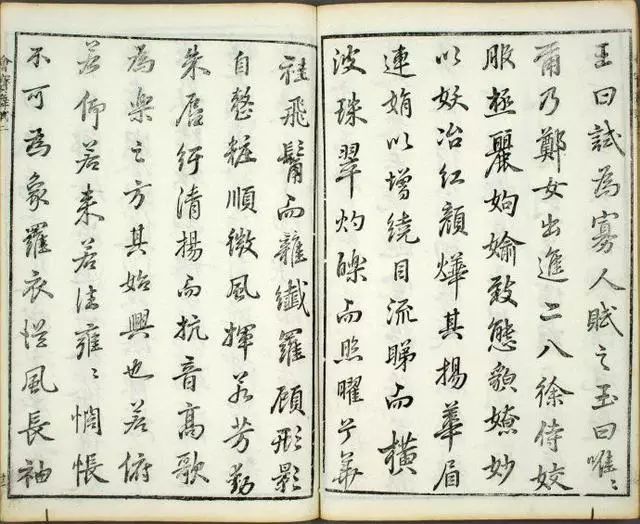 王曰試為寡人賦之玉曰唯〻
爾乃鄭女出進二八徐侍姣
服極麗姁媮致態貌嫽妙
以妖冶紅顏燁其揚華眉
連娟以增繞目流睇而橫
波珠翠灼皪而照曜兮華
袿飛髾而雜纖羅顧形影
自整粧順微風揮若芳動
朱唇紆清揚而抗音高歌
為樂之方其始興也若俯
若仰若来若往雍〻惆悵
不可為象羅衣從風長袖